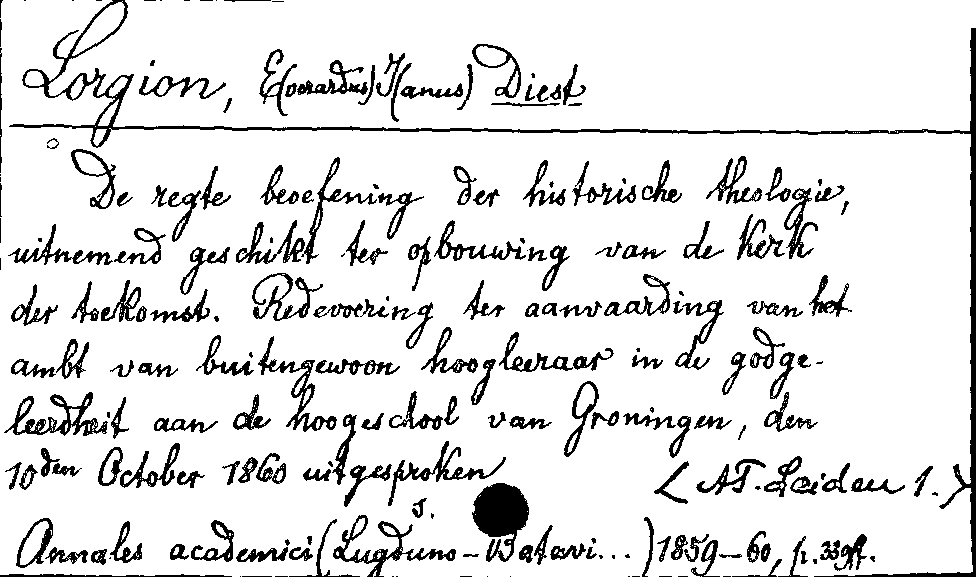 Lorgion, E(verardus) J(anus) Diest
De regte beoefening der historische theologie,
uitnemend geschikt ter opbouwing van de Kerk
der toekomst. Redevoering ter aanvaarding van het
ambt van buitengewoon hoogleeraar in de godge-
leerdheit aan de hoogeschool van Groningen, den
10den October 1860 uitgesproken
< AT. Leiden 1. >
Annales academici (Lugduno-Batavi...) J. 1859-60, p. 339ff.